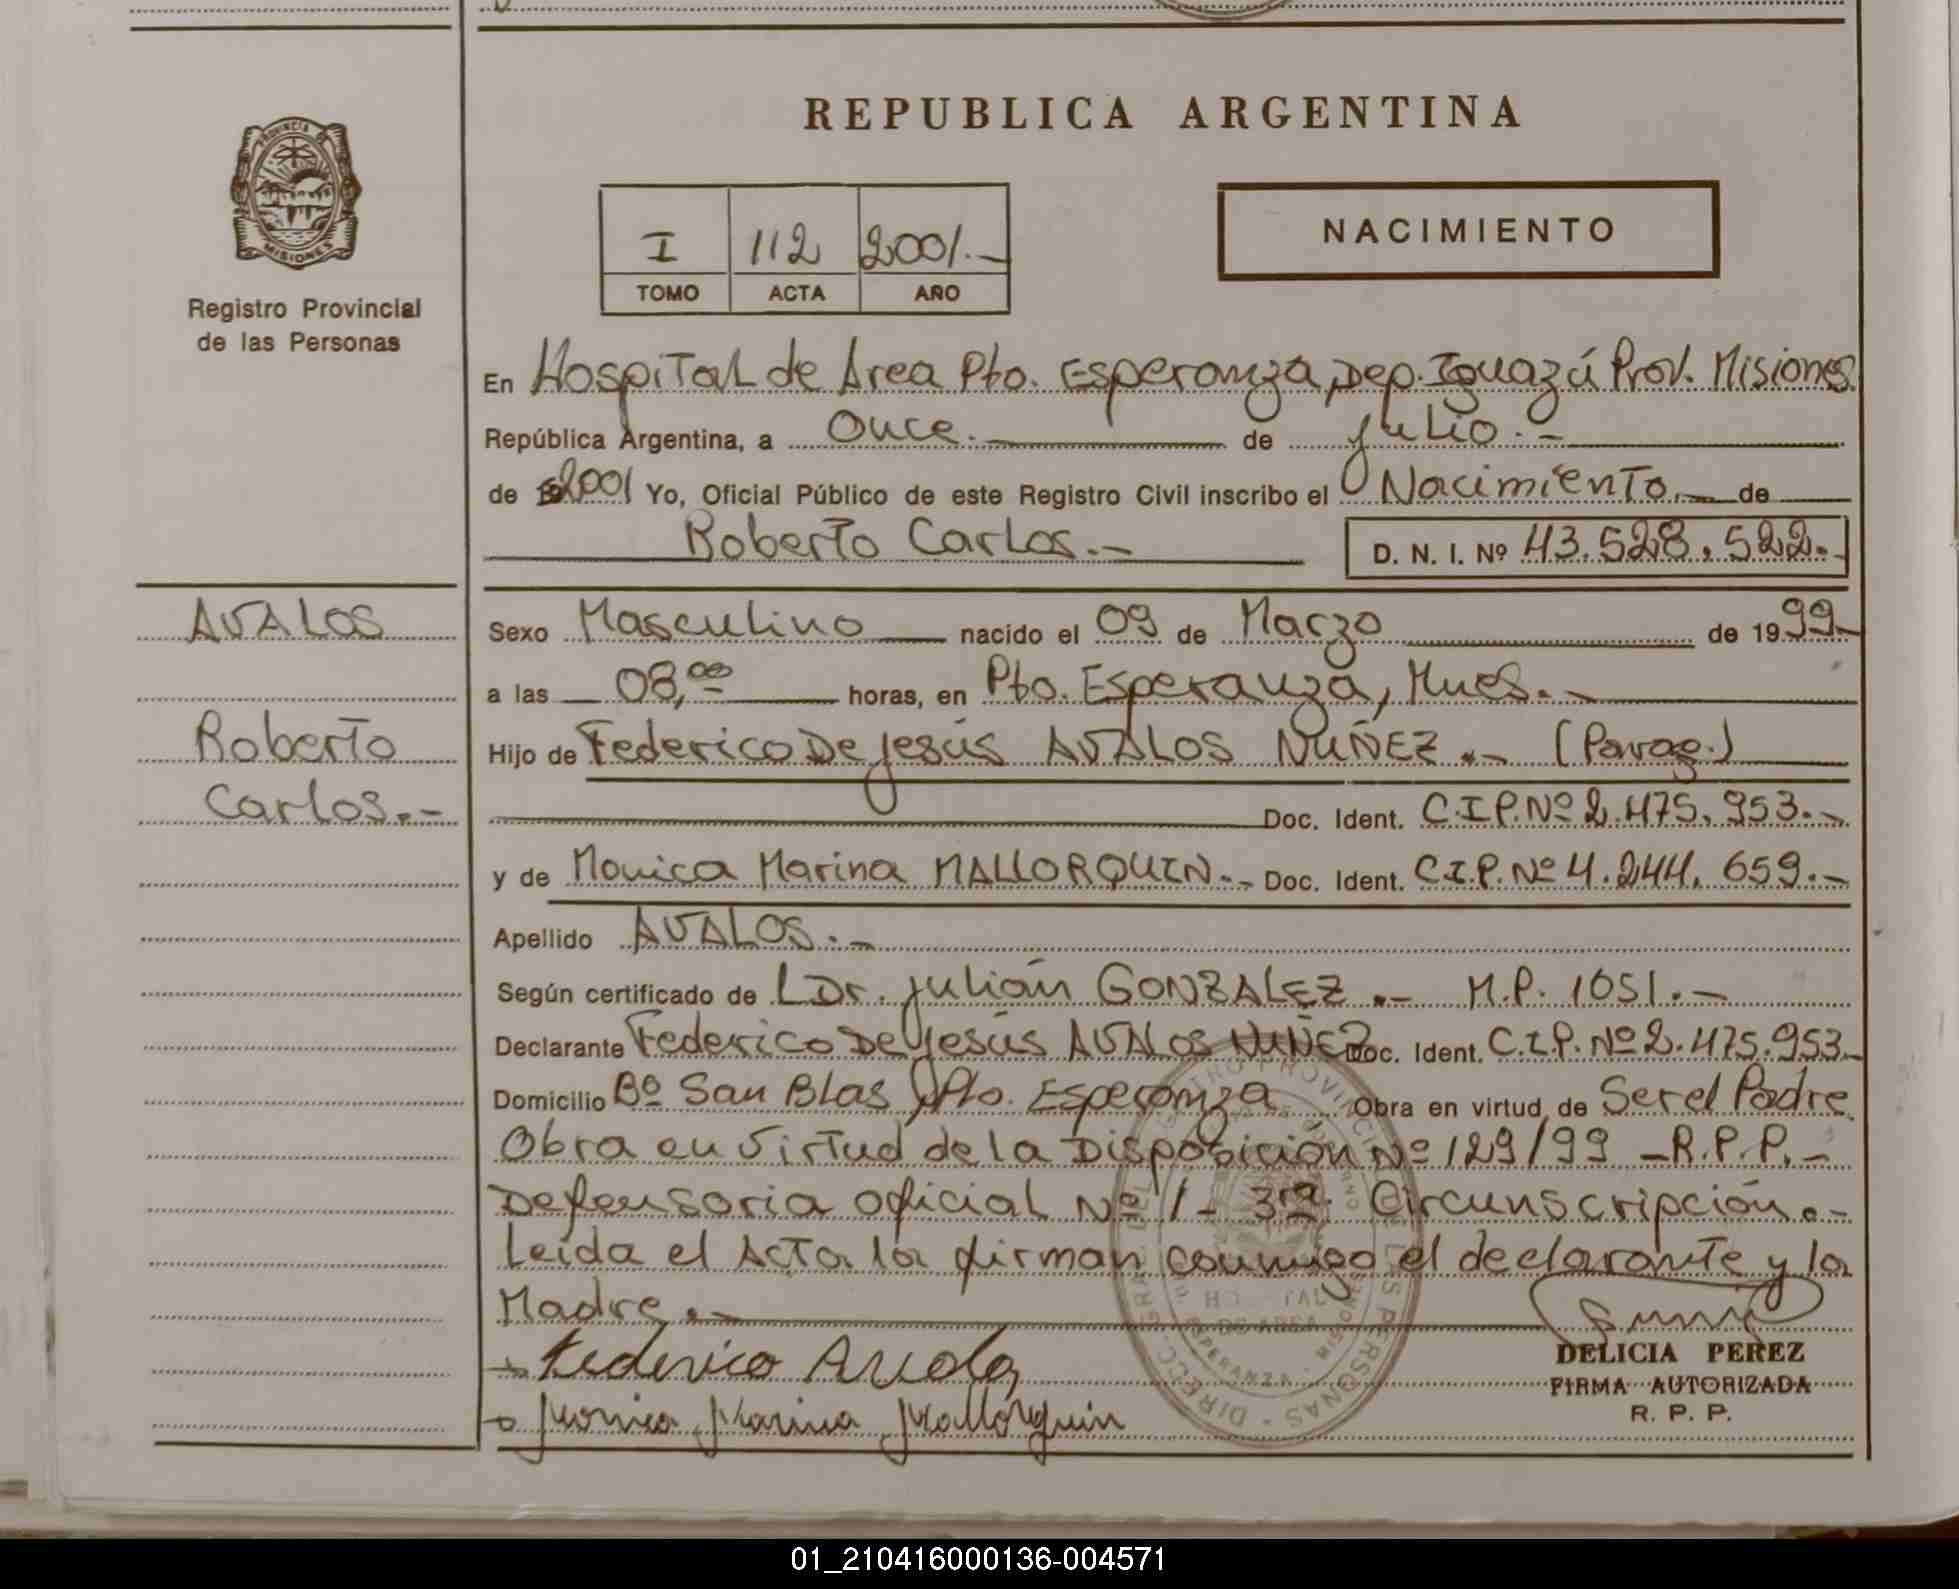 REPUBLICA ARGENTINA
PROVINCIA DE
MISIONES
Registro Provincial
de las Personas
NACIMIENTO
I 112 2001.-
TOMO ACTA AÑO
En Hospital de Area Pto. Esperanza, Dep. Iguazú Prov. Misiones.
República Argentina, a Once. de Julio.-
de 2001 Yo, Oficial Público de este Registro Civil inscribo el Nacimiento.- de
Roberto Carlos.- D. N. I. Nº 43.528.522.-
AVALOS
Roberto
Carlos.-
Sexo Masculino nacido el 09 de Marzo de 1999-
a las 08,00 horas, en Pto. Esperanza, Mnes.-
Hijo de Federico De Jesús AVALOS NUÑEZ.- (Parag.)
Doc. Ident. C.I.P. Nº 2.475.953.-
y de Monica Marina MALLORQUIN.- Doc. Ident. C.I.P. Nº 4.244.659.-
Apellido AVALOS.-
Según certificado de LDr. Julián GONZALEZ.- M.P. 1051.-
Declarante Federico De Jesús AVALOS NUÑEZ Doc. Ident. C.I.P. Nº 2.475.953-
Domicilio Bº San Blas, Pto. Esperanza Obra en virtud de Ser el Padre
Obra en Virtud de la Disposición Nº 129/99 -R.P.P.-
Defensoria oficial Nº 1- 3ra. Circunscripción.-
Leída el Acta la firman conmigo el declarante y la
Madre.-
Federico Avalos
Monica Marina Mallorquin
DELICIA PEREZ
FIRMA AUTORIZADA
R. P. P.
01_210416000136-004571